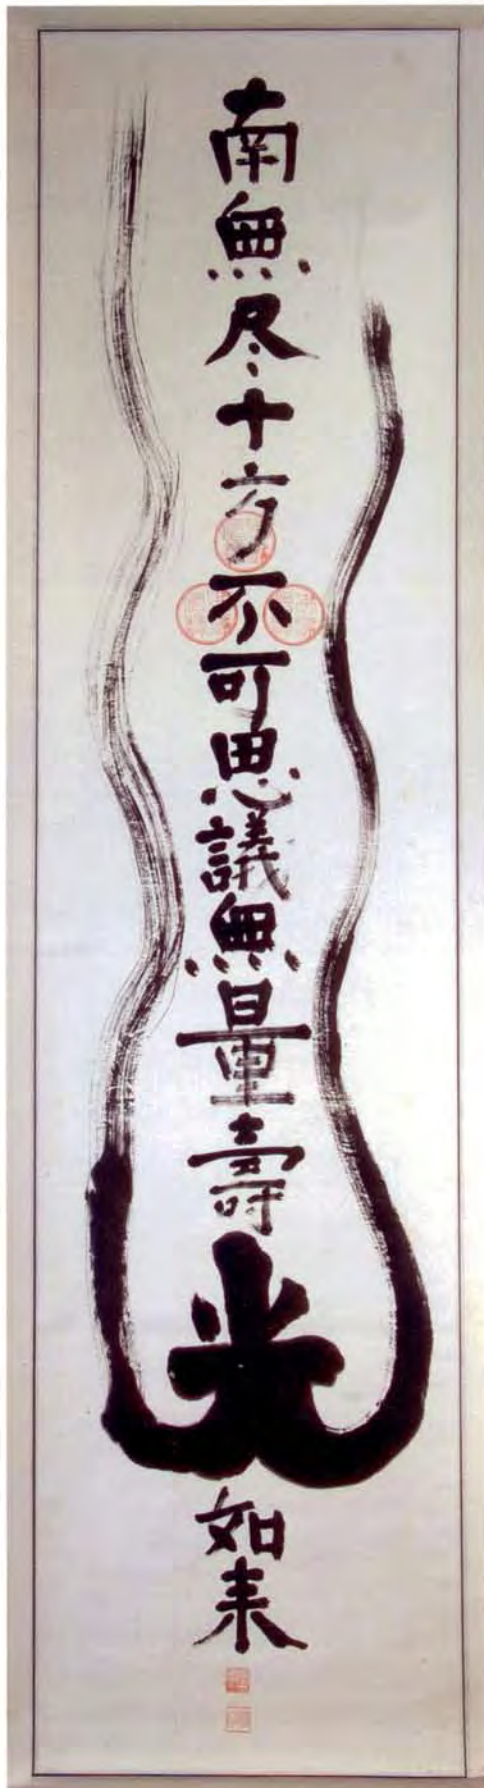 南無尽十方不可思議無量壽光如来